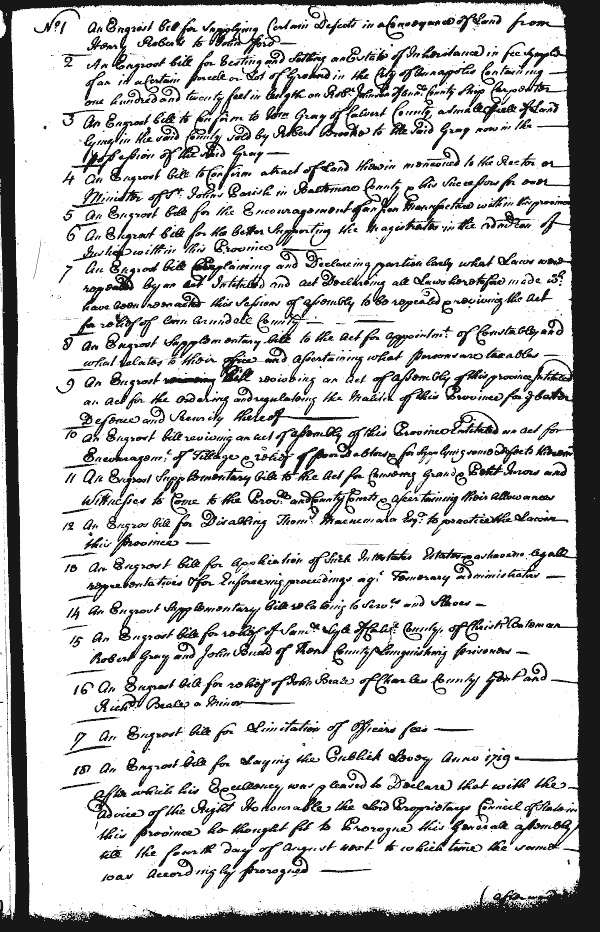 No 1 An Engrost bill for Supplying Certain Defects in a Conveyance of Land from
Henry Roberts to John
2 An Engrost bill for Vesting and Setling an Estate of Inheritance in fee Symple
of an in a Certain parcele or Lot of Ground in the City of Annapolis Containing
one hundred and twenty feet in length on Robt Johnson of County Ship Carpenter
3 An Engrost bill to Confirm to Gray of Calvert County, a small of Land
lying in the said County sold by Robert Brooke to the said Gray now in the
possession of the said Gray
4 An Engrost bill to Confirm a tract of Land therein menconed to the Rector or
Minister of St. Johns Parish in Baltimore County & his Successors for ever
5 An Engrost bill for the Encouragement of an Iron Manufacture within the province
6 An Engrost bill for the better Supporting the Magistrates in the of
Justice within this Province
7 An Engrost bill Explaining and Declaring particularly what Laws were
repealed by an act Intituled and act Declaring all Laws heretofore made wch
have been reenacted this Sessions of assembly to be repealed & reviving the Act
for relief of Ann Arundell County
8 An Engrost Supplementary bill to the Act for Appointmt. of Constables and
what relates to their office and asertaining what persons are taxables
9 An Engrost bill reviving an Act of assembly of this province Intituled
an Act for the ordering and regulating the Malitia of this Province for ye better
Defence and Security thereof
10 An Engrost bill reviving an act of assembly of this Province Entituled an act for
Encouragemt. of Tillage & relief of poor Debtors & for Supplying some defects therein
11 An Engrost Supplementary bill to the Act for Grand & Petit Jurors and
Wittnesses to Come to the Provll. and County Courts & Asertaining their Allowances
12 An Engros bill for Disabling Thoms Macnemara Esqr. to practice the Law in
this province
13 An Engrost bill for Application of Such Intestates Estates as have no legall
representatives & for Enforceing proceedings agt. Temerary administrators
14 An Engrost Supplementary bill relating to Servts and Slaves
15 An Engrost bill for relief of Saml. Lyle of County, of Christr. Bateman
Robert Gray and John of Kent County Languishing prisoners
16 An Engrost bill for relief of John Beale of Charles County Gent and
Richd. Beale a Minor
17 An Engrost bill for Limitation of Officers fees
18 An Engrost bill for Laying the Publick Levey Anno 1719
after which his Excellency was pleased to Declare that with the
Advice of the Right Honourable the Lord Proprietarys Council of State in
this province he thought fit to Prorogue this Generall assembly
till the fourth day of August next to which time the same
was accordingly prorogued